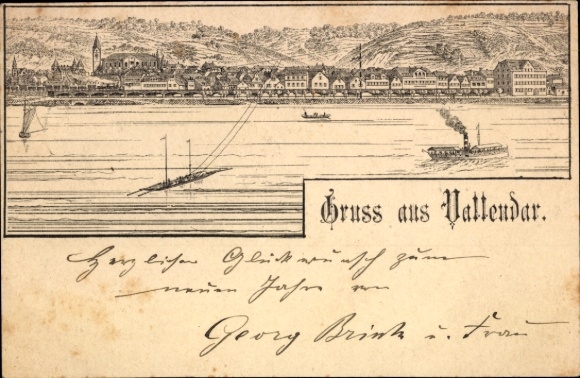 Gruss aus Vallendar.
Herzlichen Glückwunsch zum
neuen Jahre von
Georg Brink u. Frau